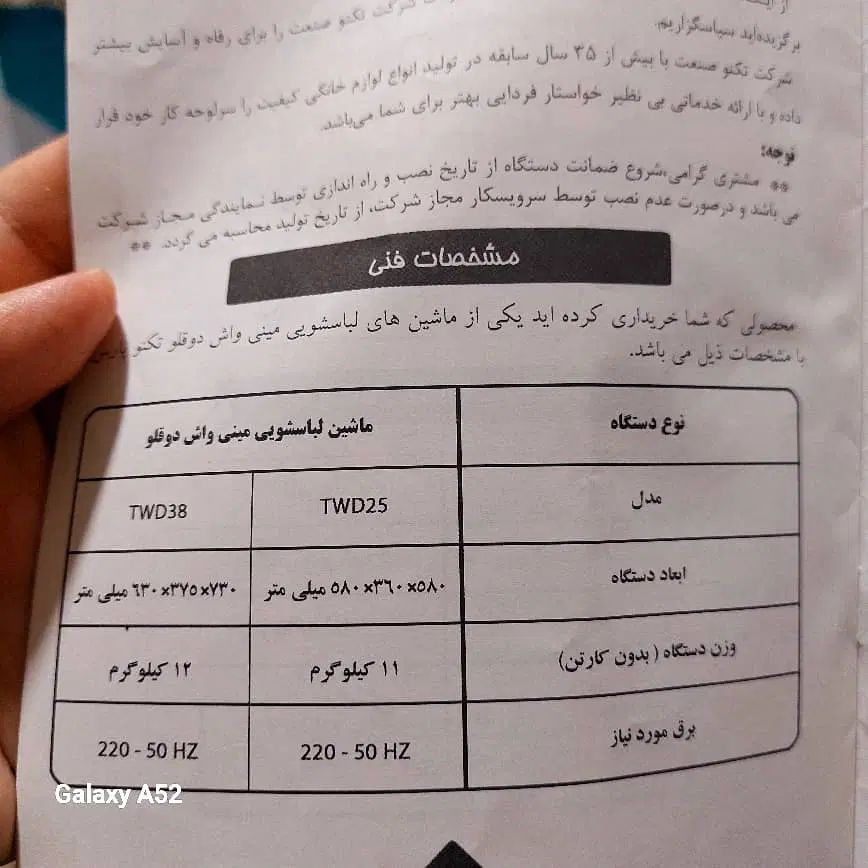 از
برگزیده‌اید سپاسگزاریم.
شرکت تکنو صنعت را برای رفاه و آسایش بیشتر
شرکت تکنو صنعت با بیش از ۳۵ سال سابقه در تولید انواع لوازم خانگی کیفیت را سرلوحه کار خود قرار
داده و با ارائه خدماتی بی نظیر خواستار فردایی بهتر برای شما می‌باشد.
توجه:
** مشتری گرامی،شروع ضمانت دستگاه از تاریخ نصب و راه اندازی توسط نمایندگی مجاز شرکت
می باشد و درصورت عدم نصب توسط سرویسکار مجاز شرکت، از تاریخ تولید محاسبه می گردد. **
مشخصات فنی
محصولی که شما خریداری کرده اید یکی از ماشین های لباسشویی مینی واش دوقلو تکنو
با مشخصات ذیل می باشد.
نوع دستگاه ماشین لباسشویی مینی واش دوقلو
مدل TWD25 TWD38
ابعاد دستگاه ۵۸۰×۳۶۰×۵۸۰ میلی متر ۷۳۰×۳۷۵×۶۳۰ میلی متر
وزن دستگاه ( بدون کارتن) ۱۱ کیلوگرم ۱۲ کیلوگرم
برق مورد نیاز 220 - 50 HZ 220 - 50 HZ
Galaxy A52